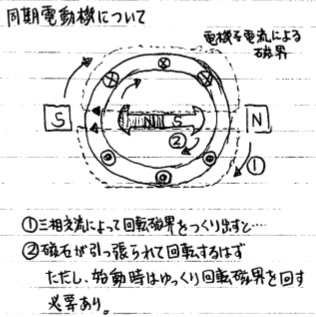 同期電動機について
電機子電流による
磁界
S
N S
N
②
①
①三相交流によって回転磁界をつくり出すと‥‥
②磁石が引っ張られて回転するはず
ただし、始動時はゆっくり回転磁界を回す
必要あり。